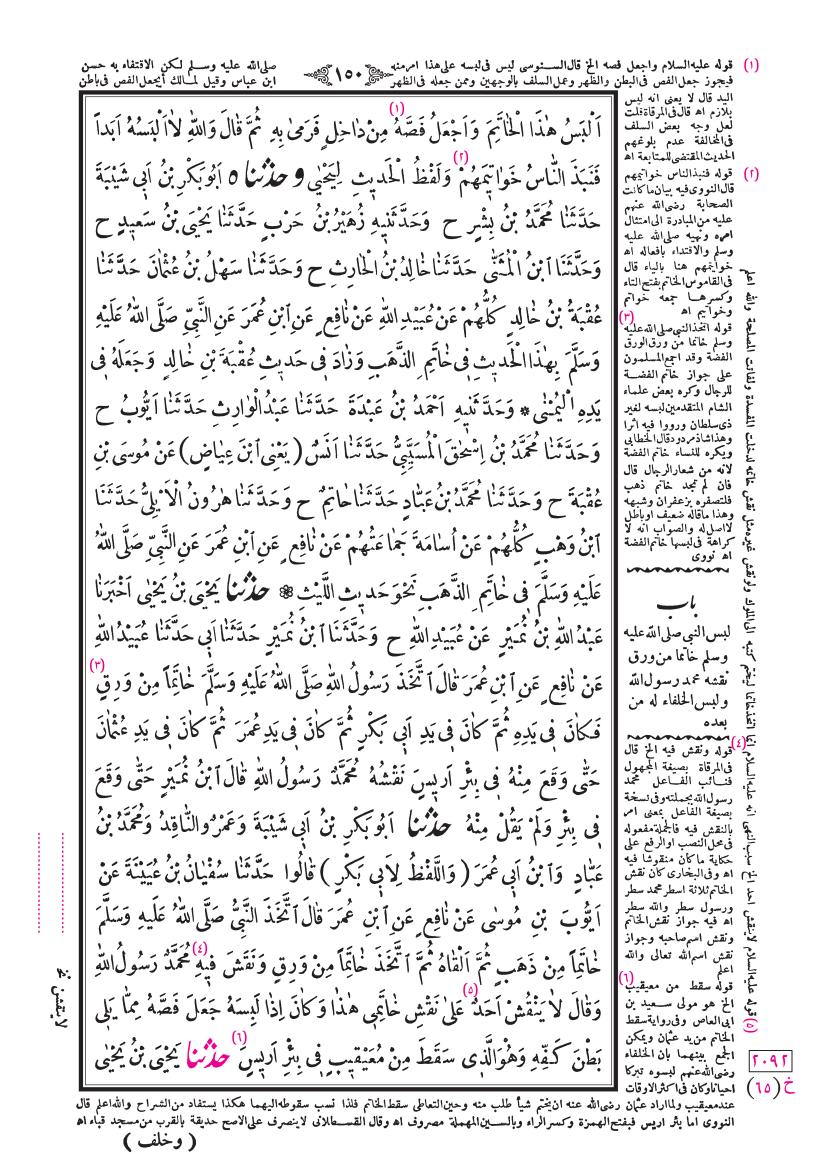 (١) قوله عليه السلام واجعل فصه الخ قال السنوسى ليس فى لبسه على هذا امر منه
﴿ ١٥٠ ﴾
صلى الله عليه وسلم لكن الاقتفاء به حسن
فيجوز جعل الفص فى البطن والظهر وعمل السلف بالوجهين وممن جعله فى الظهر
ابن عباس وقيل لمالك أيجعل الفص فى باطن
اليد قال لا يعنى انه ليس
بلازم اه قال فى المرقاة قلت
لعل وجه بعض السلف
فى المخالفة عدم بلوغهم
الحديث المقتضى للمتابعة اه
(٢) قوله فنبذ الناس خواتيمهم
قال النووى فيه بيان ما كانت
الصحابة رضى الله عنهم
عليه من المبادرة الى امتثال
امره ونهيه صلى الله عليه
وسلم والاقتداء بافعاله اه
خواتيمهم هنا بالياء قال
فى القاموس الخاتم بفتح التاء
وكسرها جمعه خواتم
وخواتيم اه
(٣) قوله اتخذ النبى صلى الله عليه
وسلم خاتما من ورق الورق
الفضة وقد اجمع المسلمون
على جواز خاتم الفضة
للرجال وكره بعض علماء
الشام المتقدمين لبسه لغير
ذى سلطان ورووا فيه اثرا
وهذا شاذ مردود قال الخطابى
ويكره للنساء خاتم الفضة
لانه من شعار الرجال قال
فان لم تجد خاتم ذهب
فلتصفره بزعفران وشبهه
وهذا ما قاله ضعيف او باطل
لا اصل له والصواب انه لا
كراهة فى لبسها خاتم الفضة
اه نووى
باب
لبس النبى صلى الله عليه
وسلم خاتما من ورق
نقشه محمد رسول الله
ولبس الخلفاء له من
بعده
(٤) قوله ونقش فيه الخ قال
فى المرقاة بصيغة المجهول
فنائب الفاعل محمد
رسول الله بجملته وفى نسخة
بصيغة الفاعل بمعنى امر
بالنقش فيه فالجملة مفعوله
فى محل النصب او الرفع على
حكاية ما كان منقوشا فيه
اه وفى البخارى كان نقش
الخاتم ثلاثة اسطر محمد سطر
ورسول سطر والله سطر
اه فيه جواز نقش الخاتم
ونقش اسم صاحبه وجواز
نقش اسم الله تعالى والله
اعلم
(٦) قوله سقط من معيقيب
الخ هو مولى سعيد بن
ابى العاص وفى رواية سقط
الخاتم من يد عثمان ويمكن
الجمع بينهما بأن الخلفاء
رضى الله عنهم لبسوه تبركا
احيانا وكان فى اكثر الاوقات
(٥) قوله عليه السلام لا ينقش احد الخ سبب النهى انه عليه السلام انما اتخذ خاتما ليختم كتبه الى الملوك ولو نقش غيره مثل نقش خاتمه لدخلت المفسدة ولفاتت المصلحة والله اعلم
٢٠٩٢
خ (٦٥)
اَلْبَسُ هٰذَا الْخَاتِمَ وَاَجْعَلُ فَصَّهُ (١) مِنْ دَاخِلٍ فَرَمٰى بِهِ ثُمَّ قَالَ وَاللهِ لَا اَلْبَسُهُ اَبَداً
فَنَبَذَ النَّاسُ خَوَاتِيمَهُمْ (٢) وَلَفْظُ الْحَدِيثِ لِيَحْيٰى و حدثناه اَبُو بَكْرِ بْنُ اَبِى شَيْبَةَ
حَدَّثَنَا مُحَمَّدُ بْنُ بِشْرٍ ح وَحَدَّثَنِيهِ زُهَيْرُ بْنُ حَرْبٍ حَدَّثَنَا يَحْيَى بْنُ سَعِيدٍ ح
وَحَدَّثَنَا ابْنُ الْمُثَنّٰى حَدَّثَنَا خَالِدُ بْنُ الْحَارِثِ ح وَحَدَّثَنَا سَهْلُ بْنُ عُثْمَانَ حَدَّثَنَا
عُقْبَةُ بْنُ خَالِدٍ كُلُّهُمْ عَنْ عُبَيْدِ اللهِ عَنْ نَافِعٍ عَنِ ابْنِ عُمَرَ عَنِ النَّبِىِّ صَلَّى اللهُ عَلَيْهِ
وَسَلَّمَ بِهٰذَا الْحَدِيثِ فِى خَاتِمِ الذَّهَبِ وَزَادَ فِى حَدِيثِ عُقْبَةَ بْنِ خَالِدٍ وَجَعَلَهُ فِى
يَدِهِ الْيُمْنٰى * وَحَدَّثَنِيهِ اَحْمَدُ بْنُ عَبْدَةَ حَدَّثَنَا عَبْدُ الْوَارِثِ حَدَّثَنَا اَيُّوبُ ح
وَحَدَّثَنَا مُحَمَّدُ بْنُ اِسْحٰقَ الْمُسَيَّبِىُّ حَدَّثَنَا اَنَسٌ (يَعْنِى ابْنَ عِيَاضٍ) عَنْ مُوسَى بْنِ
عُقْبَةَ ح وَحَدَّثَنَا مُحَمَّدُ بْنُ عَبَّادٍ حَدَّثَنَا حَاتِمٌ ح وَحَدَّثَنَا هٰرُونُ الْاَيْلِىُّ حَدَّثَنَا
ابْنُ وَهْبٍ كُلُّهُمْ عَنْ اُسَامَةَ جَمَاعَتُهُمْ عَنْ نَافِعٍ عَنِ ابْنِ عُمَرَ عَنِ النَّبِىِّ صَلَّى اللهُ
عَلَيْهِ وَسَلَّمَ فِى خَاتِمِ الذَّهَبِ نَحْوَ حَدِيثِ اللَّيْثِ * حدثنا يَحْيَى بْنُ يَحْيٰى اَخْبَرَنَا
عَبْدُ اللهِ بْنُ نُمَيْرٍ عَنْ عُبَيْدِ اللهِ ح وَحَدَّثَنَا ابْنُ نُمَيْرٍ حَدَّثَنَا اَبِى حَدَّثَنَا عُبَيْدُ اللهِ
عَنْ نَافِعٍ عَنِ ابْنِ عُمَرَ قَالَ اتَّخَذَ رَسُولُ اللهِ صَلَّى اللهُ عَلَيْهِ وَسَلَّمَ خَاتِماً مِنْ وَرِقٍ (٣)
فَكَانَ فِى يَدِهِ ثُمَّ كَانَ فِى يَدِ اَبِى بَكْرٍ ثُمَّ كَانَ فِى يَدِ عُمَرَ ثُمَّ كَانَ فِى يَدِ عُثْمَانَ
حَتّٰى وَقَعَ مِنْهُ فِى بِئْرِ اَرِيسٍ نَقْشُهُ مُحَمَّدٌ رَسُولُ اللهِ قَالَ ابْنُ نُمَيْرٍ حَتّٰى وَقَعَ
فِى بِئْرٍ وَلَمْ يَقُلْ مِنْهُ حدثنا اَبُو بَكْرِ بْنُ اَبِى شَيْبَةَ وَعَمْرٌو النَّاقِدُ وَمُحَمَّدُ بْنُ
عَبَّادٍ وَابْنُ اَبِى عُمَرَ (وَاللَّفْظُ لِاَبِى بَكْرٍ) قَالُوا حَدَّثَنَا سُفْيَانُ بْنُ عُيَيْنَةَ عَنْ
اَيُّوبَ بْنِ مُوسٰى عَنْ نَافِعٍ عَنِ ابْنِ عُمَرَ قَالَ اتَّخَذَ النَّبِىُّ صَلَّى اللهُ عَلَيْهِ وَسَلَّمَ
خَاتِماً مِنْ ذَهَبٍ ثُمَّ اَلْقَاهُ ثُمَّ اتَّخَذَ خَاتِماً مِنْ وَرِقٍ وَنَقَشَ فِيهِ (٤) مُحَمَّدٌ رَسُولُ اللهِ
وَقَالَ لَا يَنْقُشْ اَحَدٌ (٥) عَلٰى نَقْشِ خَاتِمِى هٰذَا وَكَانَ اِذَا لَبِسَهُ جَعَلَ فَصَّهُ مِمَّا يَلِى
بَطْنَ كَفِّهِ وَهُوَ الَّذِى سَقَطَ مِنْ مُعَيْقِيبٍ فِى بِئْرِ اَرِيسٍ (٦) حدثنا يَحْيَى بْنُ يَحْيٰى
لا ينقشن نخ
عند معيقيب ولما اراد عثمان رضى الله عنه ان يختم شيأ طلب منه وحين التعاطى سقط الخاتم فلذا نسب سقوطه اليهما هكذا يستفاد من الشراح والله اعلم قال
النووى اما بئر اريس فبفتح الهمزة وكسر الراء وبالسين المهملة مصروف اه وقال القسطلانى لا ينصرف على الاصح حديقة بالقرب من مسجد قباء اه
( وخلف )